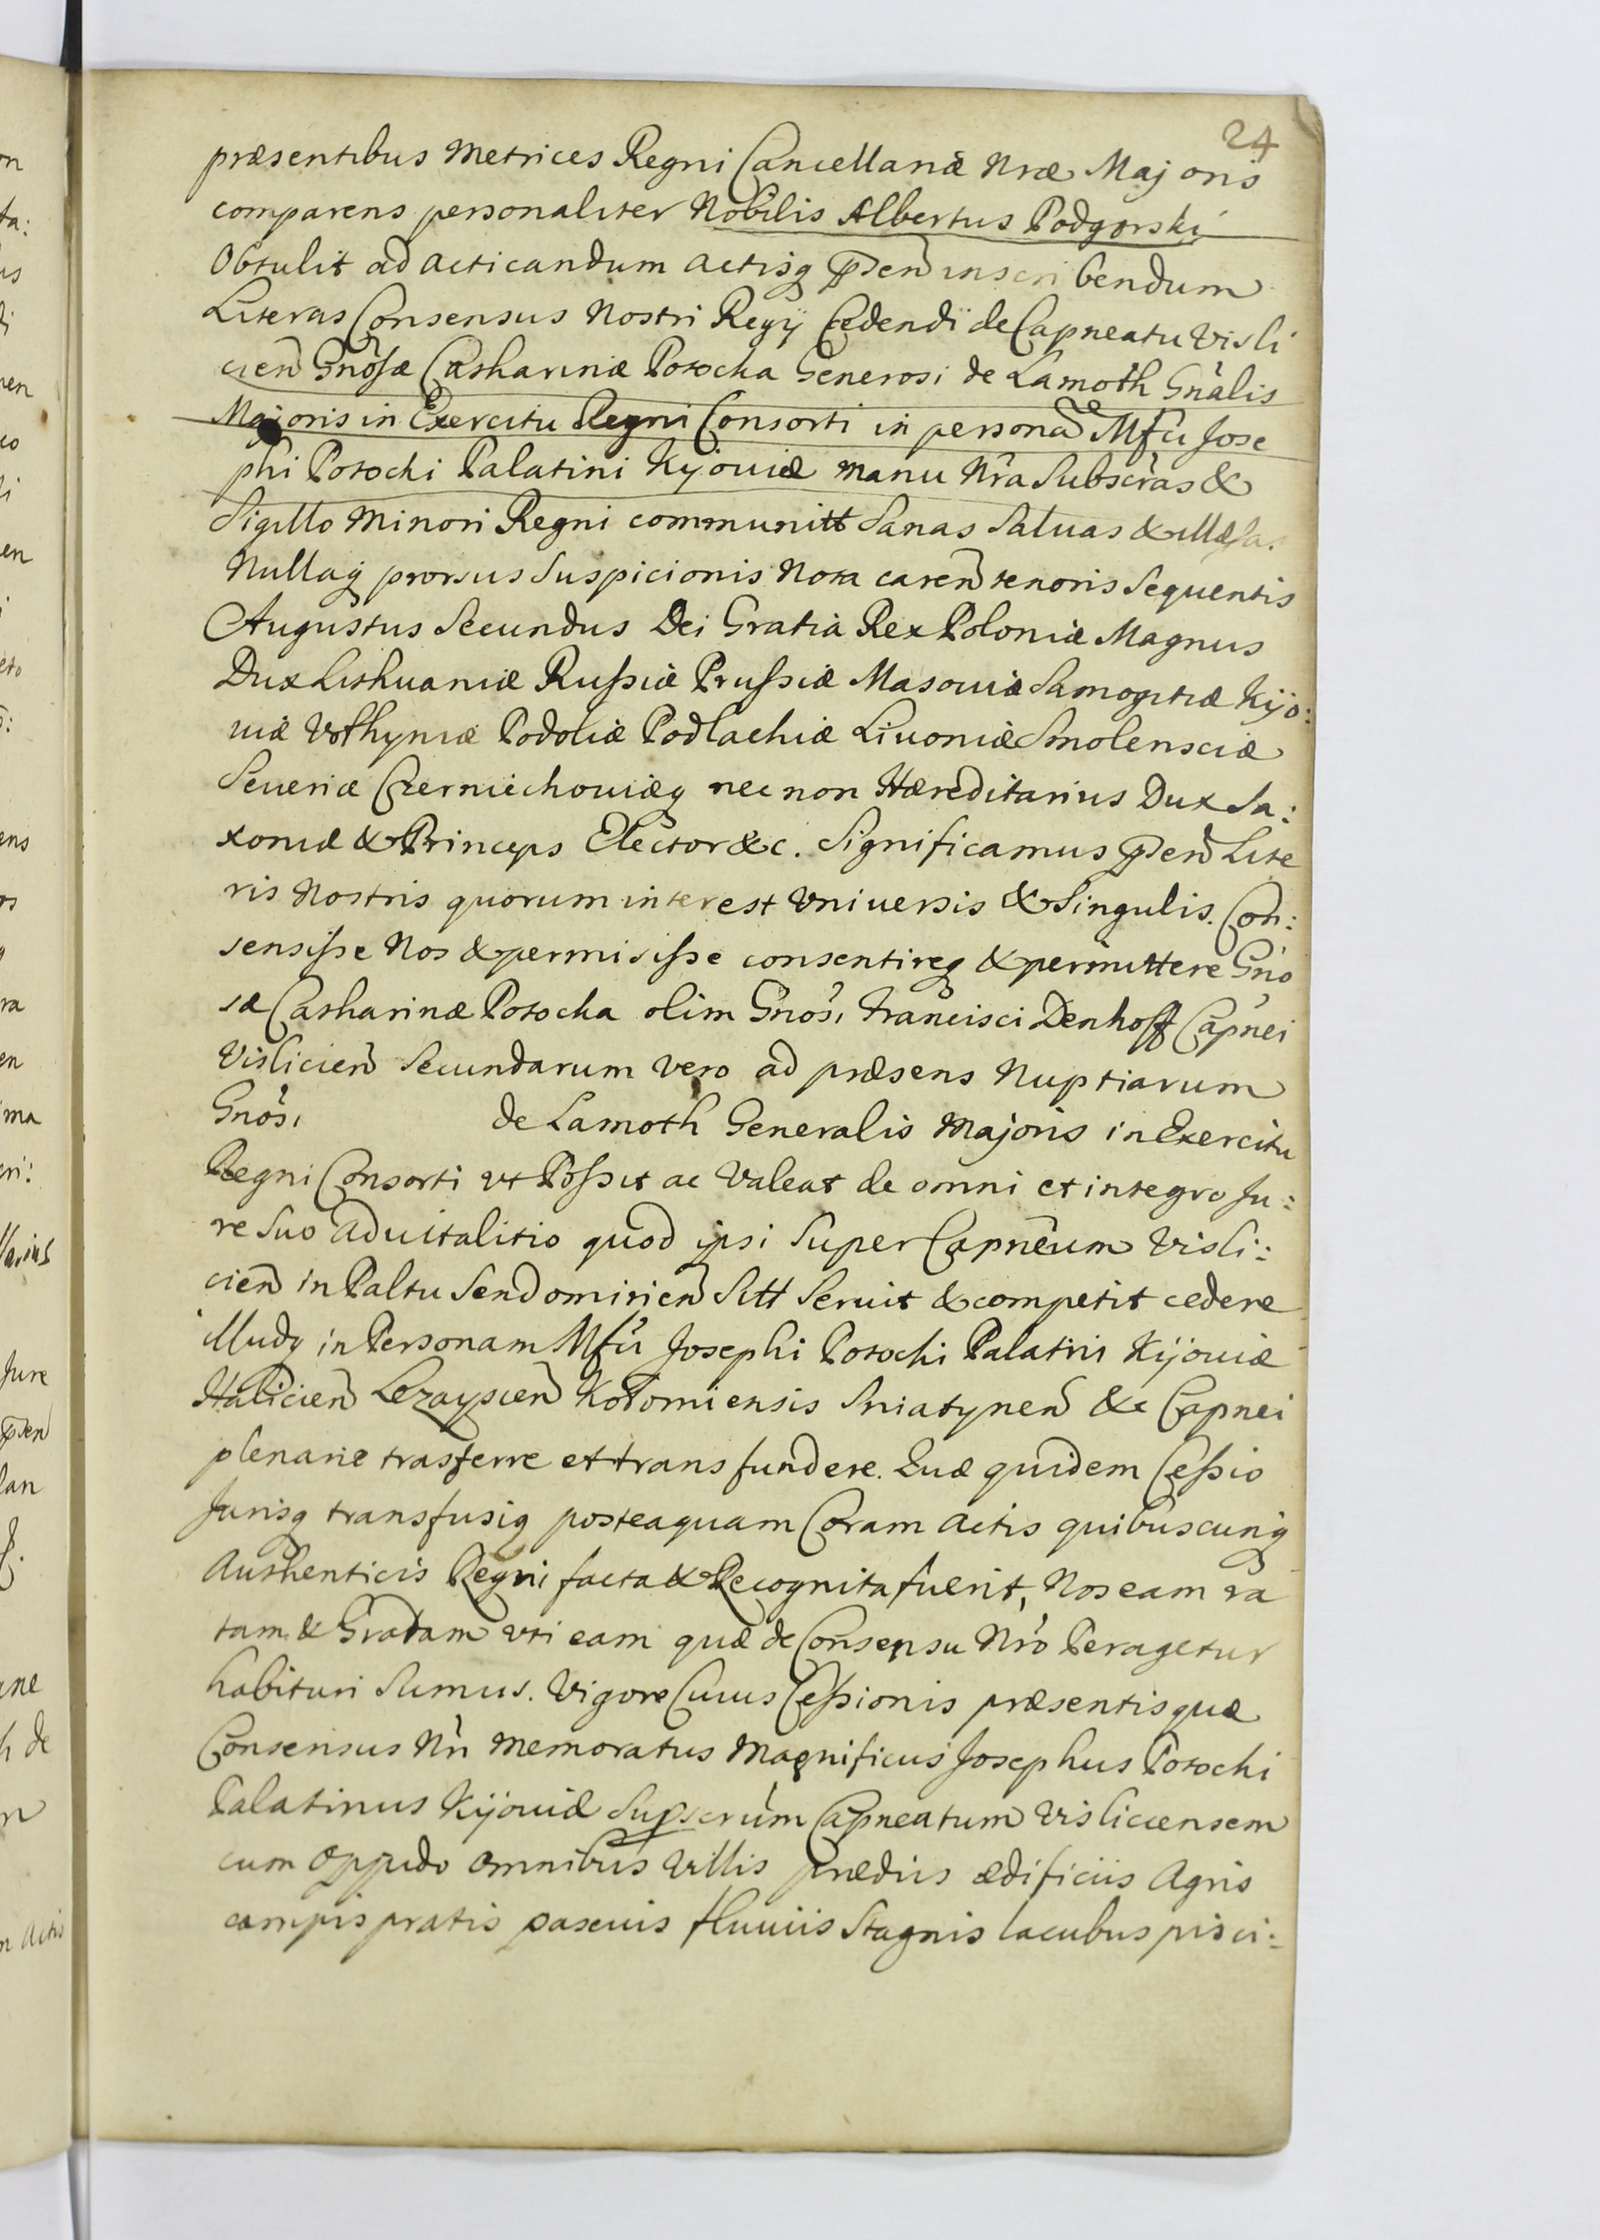 24
præsentibus Metrices Regni Cancellariæ Nræ Majoris
comparens personaliter Nobilis Albertus Podgorski
Obtulit ad acticandum actisq pñten inscribendum
Literas Consensus Nostri Regÿ Cedendi de Capneatu Visli
cien Gnosæ Catharinæ Potocka Generosi de Lamoth Gnalis
Majoris in Exercitu Regni Consorti in personã Mfci Jose
phi Potocki Palatini Kÿoviæ manu Nra Subscras &
Sigillo Minori Regni communitt Sanas Saluas & illæsa.
Nullaq prorsus Suspicionis Nota caren tenoris Sequentis
Augustus Secundus Dei Gratia Rex Poloniæ Magnus
Dux Lithuaniæ Russiæ Prussiæ Masouiæ Samogitiæ Kÿo:
uiæ Volhyniæ Podoliæ Podlachiæ Liuoniæ Smolensciæ
Seueriæ Czerniechouiæq nec non Hæreditarius Dux Sa:
xoniæ & Princeps Elector &c. Significamus pñten Lite
ris Nostris quorum interest Vniuersis & Singulis. Con:
sensisse Nos & permisisse consentireq & permittere Gno
sæ Catharinæ Potocka olim Gnosi Francisci Denhoff Capnei
Vislicien Secundarum vero ad præsens Nuptiarum
Gnosi de Lamoth Generalis Majoris in Exercitu
Regni Consorti vt Possit ac Valeat de omni et integro Ju:
re Suo aduitalitio quod ipsi Super Capneum Visli:
cien in Paltu Sendomirien Sitt Seruit & competit cedere
illudq in Personam Mfci Josephi Potocki Palatini Kÿouiæ
Halicien Lezayscien Kolomiensis Sniatynen &c Capnei
plenarie trasferre et transfundere. Quæ quidem Cessio
Jurisq transfusiq posteaquam Coram Actis quibuscunq
Authenticis Regni facta & Recognita fuerit, Nos eam ra
tam & Gratam vti eam quæ de Consensu Nro Peragetur
habituri Sumus. Vigore Cuius Cessionis præsentisque
Consensus Nri memoratus Magnificus Josephus Potocki
Palatinus Kÿouiæ Supscrum Capneatum Vislicensem
cum Oppido omnibus Villis prædiis ædificiis Agris
campis pratis pascuis fluuiis Stagnis lacubus pisci: